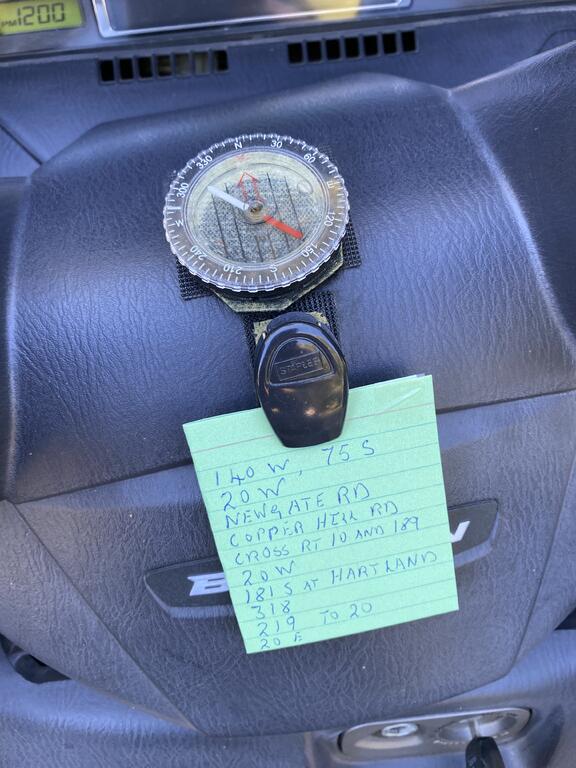 PM 1200
N 30 60
330
300
120
W
150
S
210
STAPLES
140 W, 75 S
20 W
NEWGATE RD
COPPER HILL RD
CROSS RT 10 AND 189
20 W
181 S AT HARTLAND
318
219 TO 20
20 E